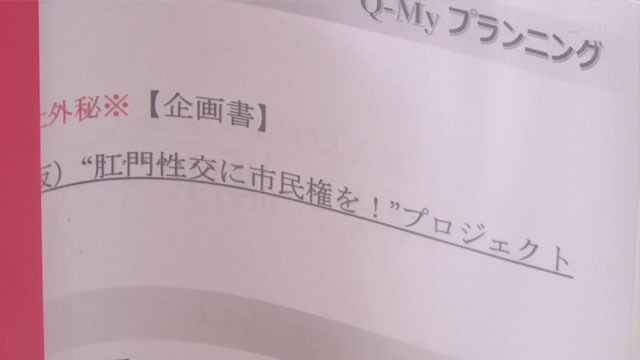 Q-My プランニング
外秘※【企画書】
仮）“肛門性交に市民権を！”プロジェクト